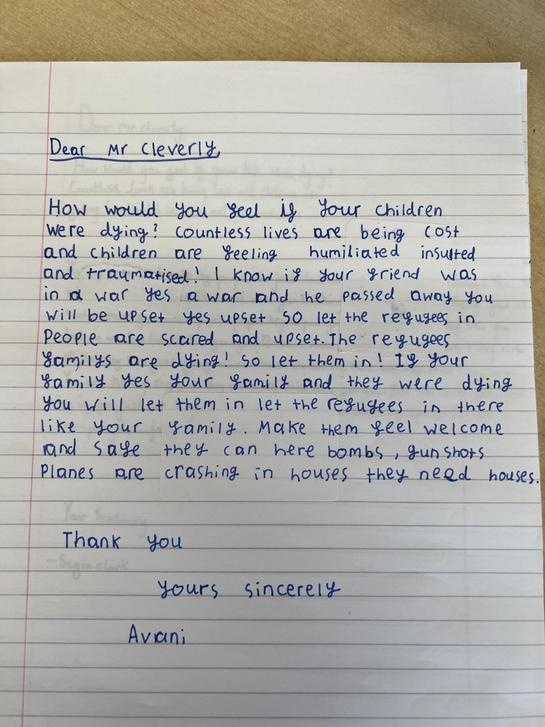 Dear Mr Cleverly,
How would you feel if your children
were dying? Countless lives are being cost
and children are feeling humiliated insulted
and traumatised! I know if your friend was
in a war yes a war and he passed away you
will be upset yes upset so let the refugees in
People are scared and upset. The refugees
familys are dying! So let them in! If your
family yes your family and they were dying
you will let them in let the refugees in there
like your family. Make them feel welcome
and safe they can here bombs, gunshots
Planes are crashing in houses they need houses.
Thank you
Yours sincerely
Aviani